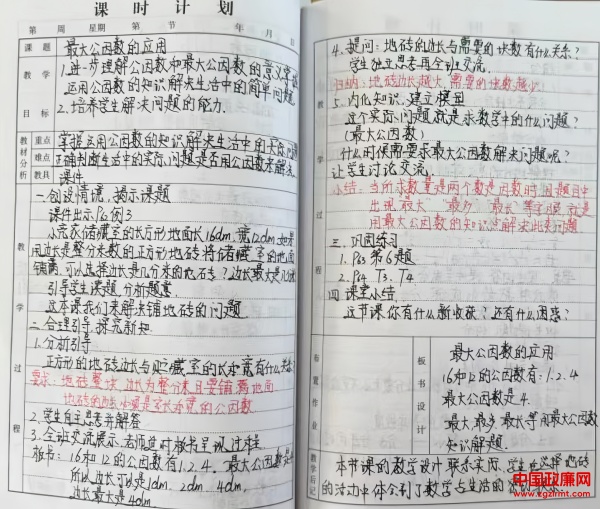 课时计划
第 周 星期 第 节 年 月 日
课题 最大公因数的应用
教学目标 1.进一步理解公因数和最大公因数的意义,掌握
运用公因数的知识解决生活中的简单问题
2.培养学生解决问题的能力.
教材分析 重点 掌握运用公因数的知识解决生活中的实际问题
难点 正确判断生活中的实际问题是否用公因数来解决
教具 课件
教学过程
一.创设情境,揭示课题
课件出示P62例3
小亮家储藏室的长方形地面长16dm,宽12dm.如果
用边长是整分米数的正方形地砖将储藏室的地面
铺满,可以选择边长是几分米的地砖?边长最大是几分米
引导学生读题,分析题意.
这节课我们来解决铺地砖的问题
二.合理引导,探究新知
1.分析引导
正方形的地砖边长与贮藏室的长和宽有什么关系?
要求:地砖整块,边长为整分米且要铺满地面
地砖的边长必须是长和宽的公因数
2.学生自主思考并解答
3.全班交流展示,老师适时板书呈现过程
板书:16和12的公因数有1.2.4.最大公因数是4
所以边长可以是1dm. 2dm. 4dm,
边长最大是4dm.
教学过程
4.提问:地砖的边长与需要的块数有什么关系?
学生独立思考再全班交流.
归纳:地砖边长越大,需要的块数越少.
5.内化知识,建立模型
这个实际问题就是求数学中的什么问题?
(最大公因数)
什么时候需要求最大公因数解决问题呢?
让学生讨论交流.
小结:当所求数量是两个数是因数时,且题目中
出现"最大""最多""最长"等字眼,就是
用最大公因数的知识来解决此类问题
三.巩固练习
1. P63第6题
2. P64 T3. T4
四 课堂小结
这节课你有什么新收获?还有什么困惑?
布置作业
板书设计
最大公因数的应用
16和12的公因数有:1.2.4
最大公因数是4.
最大.最多.最长等用最大公因数
知识解题.
教学后记
本节课的教学设计联系实际,学生在选择地砖
的活动中体会到了数学与生活的
中国政廉网
www.zgzlrmt.com